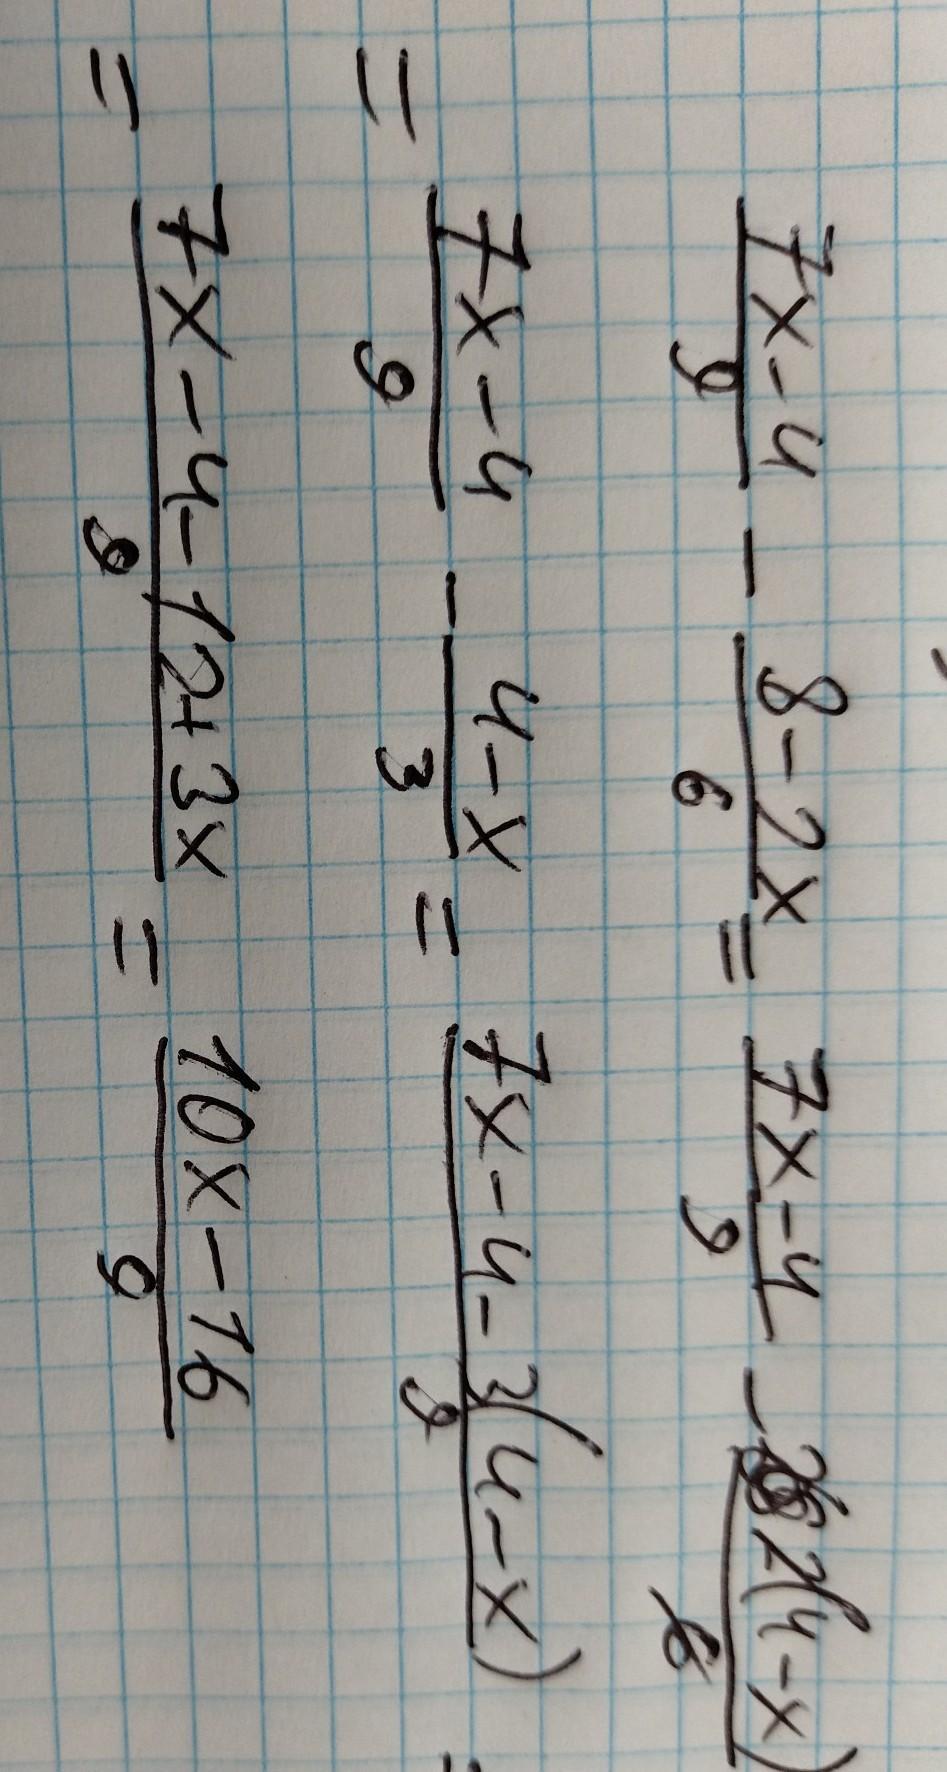 (7x-4)/9 - (8-2x)/6 = (7x-4)/9 - 2(4-x)/6
= (7x-4)/9 - (4-x)/3 = (7x-4-3(4-x))/9 =
= (7x-4-12+3x)/9 = (10x-16)/9